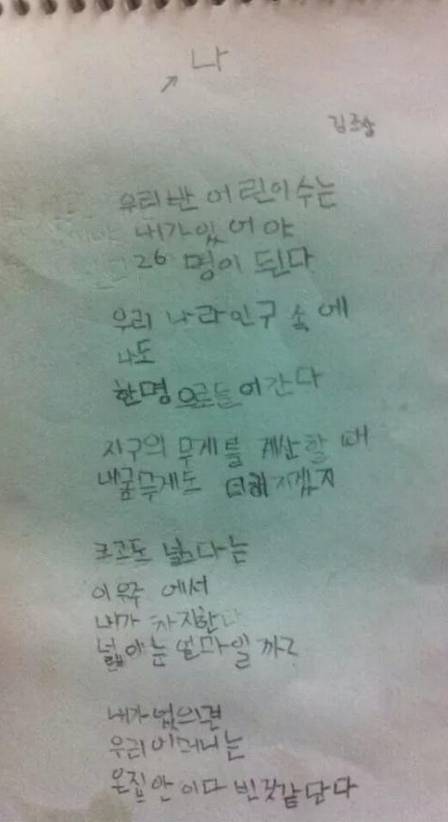 나
우리반 어린이수는
내가있어야
26 명이 된다
우리 나라인구 속에
나도
한명으로들어간다
지구의 무게를 계산할 때
내몸무게도 더해지겠지
크고도 넓다는
이우주 에서
내가 차지한
넓이는 얼마일 까?
내가없으면
우리어머니는
온집안 이다 빈것같단다